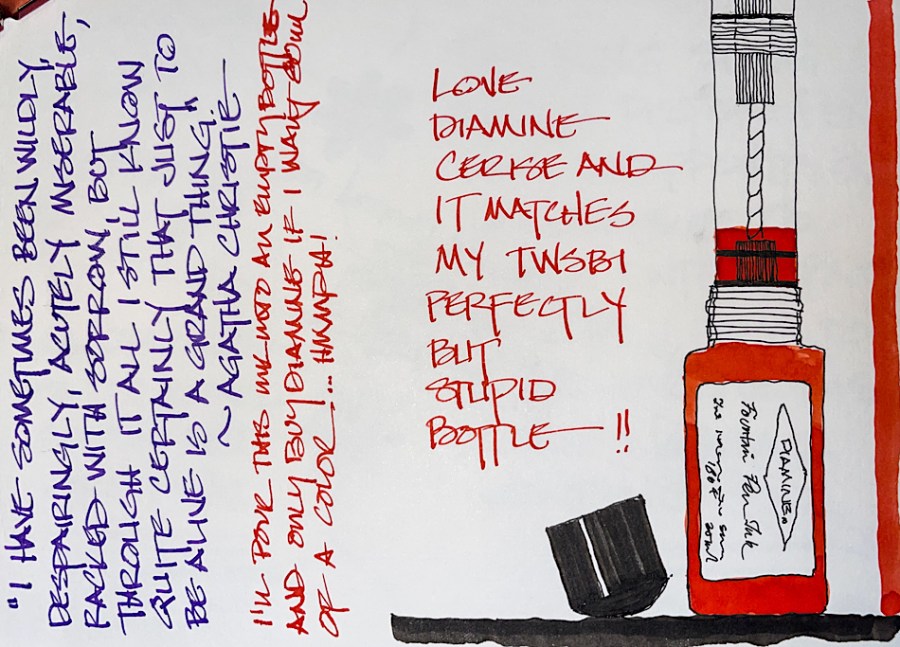 "I HAVE SOMETIMES BEEN WILDLY,
DESPAIRINGLY, ACUTELY MISERABLE,
RACKED WITH SORROW, BUT
THROUGH IT ALL I STILL KNOW
QUITE CERTAINLY THAT JUST TO
BE ALIVE IS A GRAND THING."
~ AGATHA CHRISTIE
I'LL POUR THIS INK INTO AN EMPTY BOTTLE
AND ONLY BUY DIAMINE IF I WANT 80ML
OF A COLOR... HMMPH!
LOVE
DIAMINE
CERISE AND
IT MATCHES
MY TWSBI
PERFECTLY
BUT
STUPID
BOTTLE !!
DIAMINE
Fountain Pen Ink
The
30ml